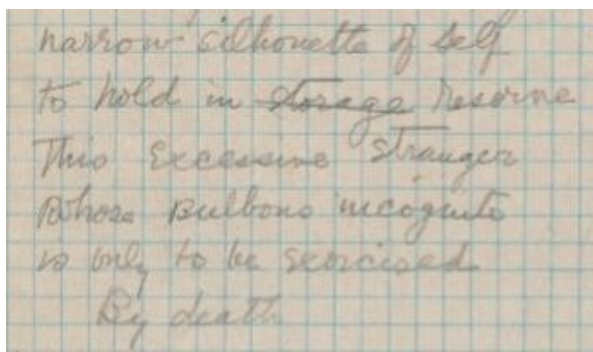 narrow silhouette of self
to hold in storage reserve
This Excessive stranger
Whose Bulbous incognito
is only to be exorcised
By death